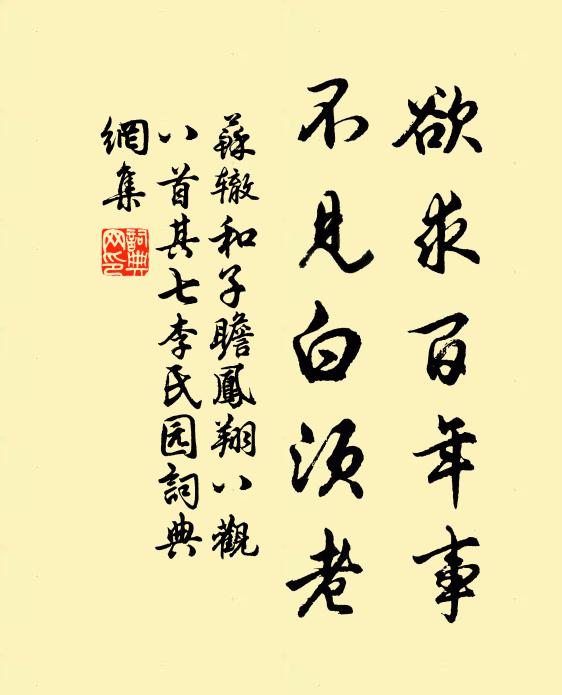 欲求百年事
不見白須老
蘇辙和子瞻鳳翔八觀
八首其七李氏园詞典
網集
詞典网印